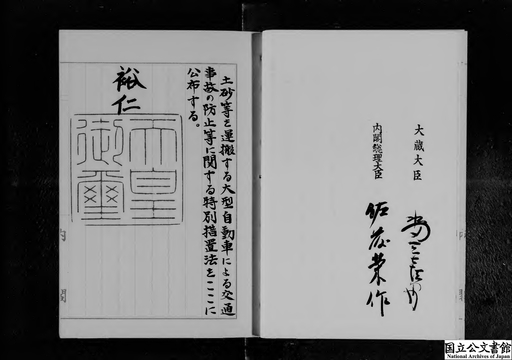 大蔵大臣
内閣総理大臣
佐藤榮作
土砂等を運搬する大型自動車による交通
事故の防止等に関する特別措置法をここに
公布する。
裕仁
天皇
御璽
国立公文書館
National Archives of Japan